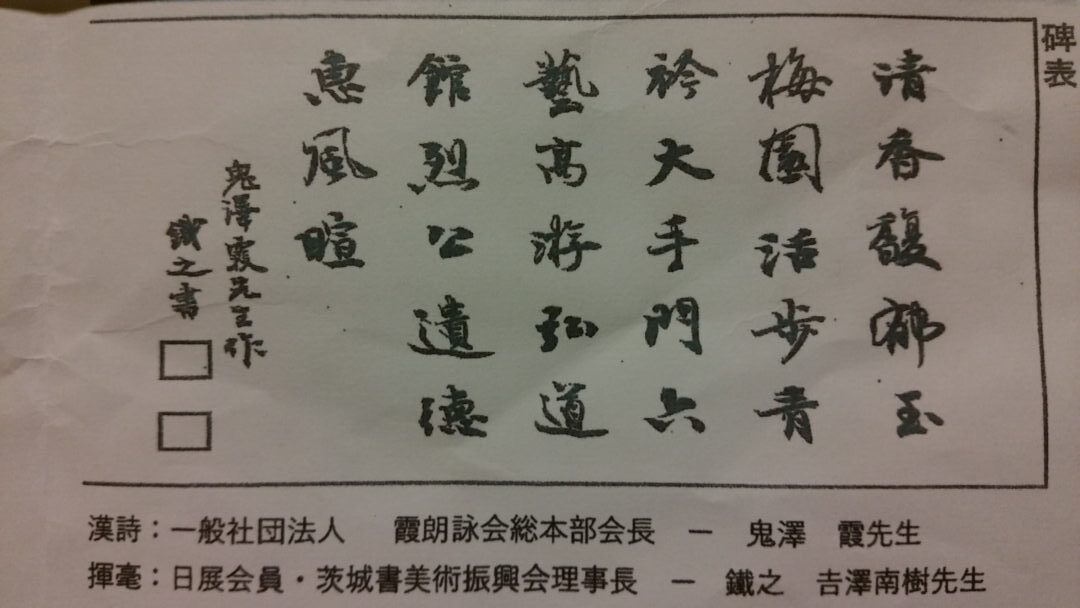 碑表
清香馥郁玉
梅園活歩青
衿大手門六
藝高游弘道
館烈公遺徳
恵風暄
鬼澤霞先生作
鐵之書
漢詩：一般社団法人　霞朗詠会総本部会長　ー　鬼澤　霞先生
揮毫：日展会員・茨城書美術振興会理事長　ー　鐵之　𠮷澤南樹先生